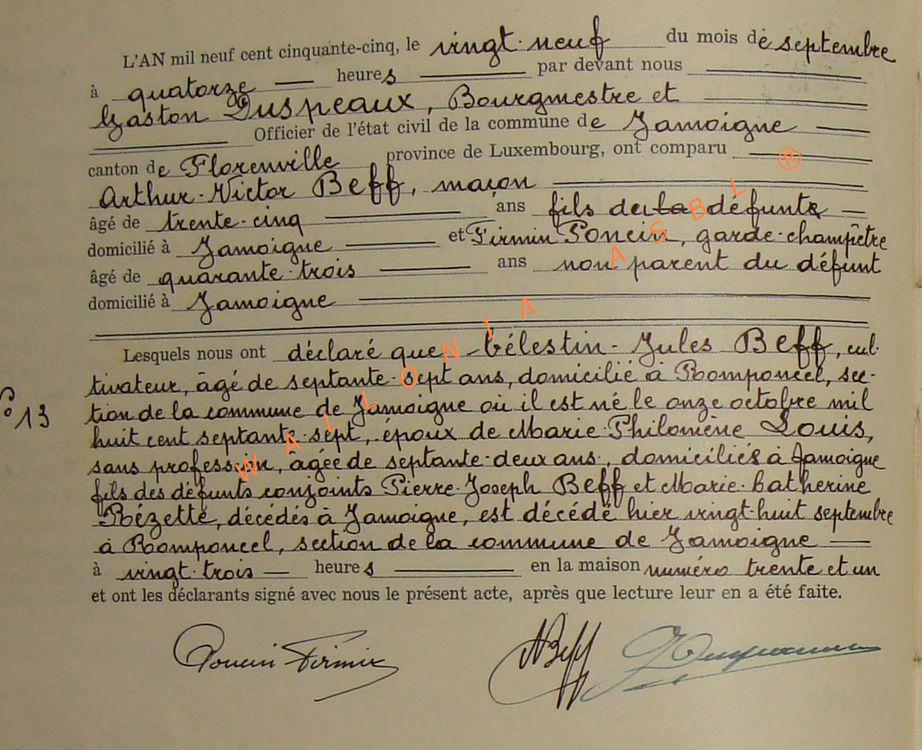 L'AN mil neuf cent cinquante-cinq, le vingt-neuf du mois de septembre
à quatorze heures par devant nous
Gaston Duspeaux, Bourgmestre et
Officier de l'état civil de la commune de Jamoigne
canton de Florenville province de Luxembourg, ont comparu
Arthur-Victor Beff, maçon
âgé de trente-cinq ans fils de la défunt
domicilié à Jamoigne et Firmin Poncin, garde-champêtre
âgé de quarante-trois ans non parent du défunt
domicilié à Jamoigne
Lesquels nous ont déclaré que Célestin-Jules Beff, cul-
tivateur, âgé de septante-sept ans, domicilié à Romponcel, sec-
tion de la commune de Jamoigne où il est né le onze octobre mil
N° 13
huit cent septante-sept, époux de Marie-Philomène Louis,
sans profession, âgée de septante-deux ans, domiciliés à Jamoigne
fils des défunts conjoints Pierre-Joseph Beff et Marie-Catherine
Rézette, décédés à Jamoigne, est décédé hier vingt-huit septembre
à Romponcel, section de la commune de Jamoigne
à vingt-trois heures en la maison numéro trente et un
et ont les déclarants signé avec nous le présent acte, après que lecture leur en a été faite.
Poncin Firmin ABeff
WALLONIA ASBL ®